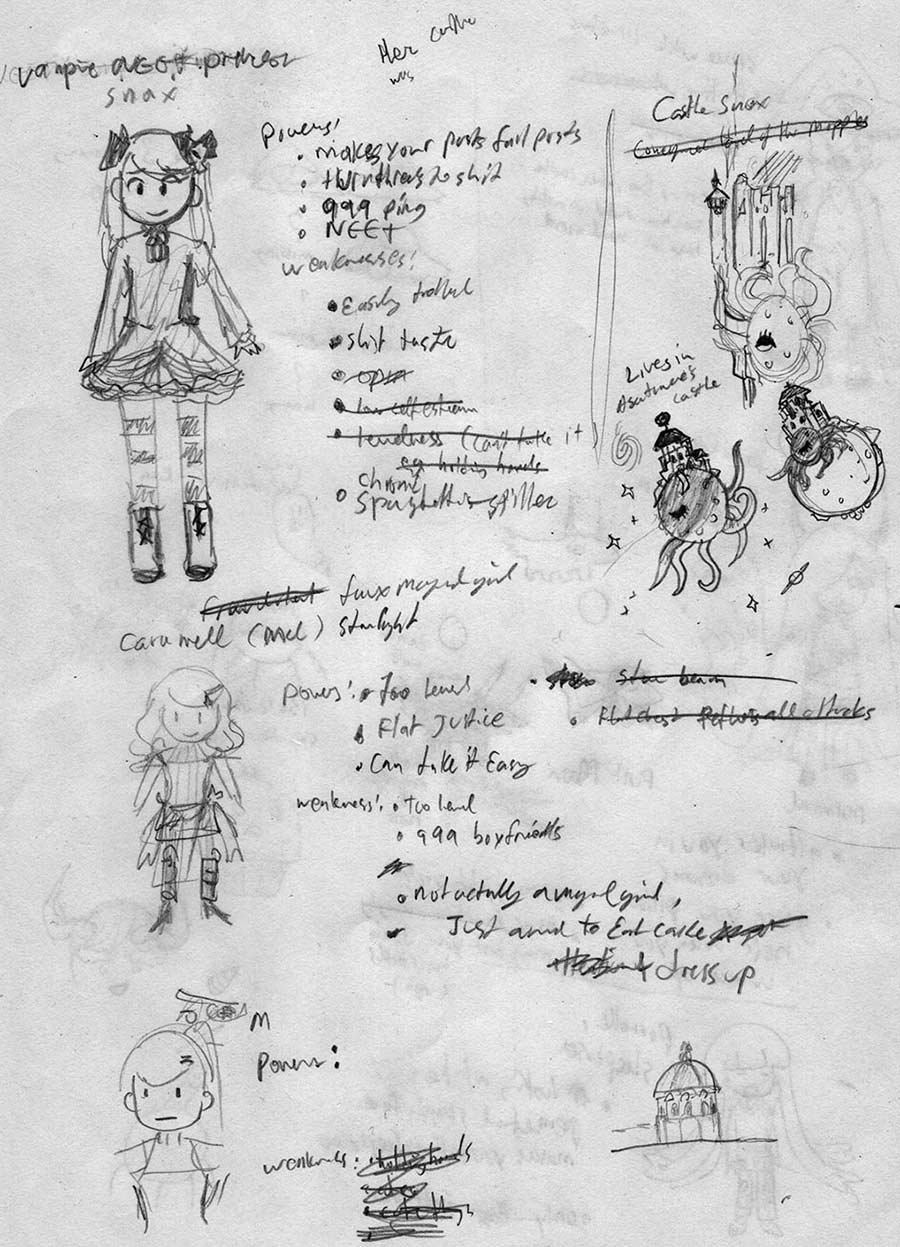 Her castle
was
Vampire NEET princess
snax
Powers:
• makes your posts fail posts
• turn threads to shit
• 999 ping
• NEET
weaknesses:
• Easily trolled
• shit taste
• low self esteem
• lewdness (can't take it
eg holding hands
chronic
• spaghetti spiller
Castle Snax
of the
Lives in
castle
faux magical girl
Caramell (Mel) Starlight
Powers: • Too lewd
• Flat Justice
• Can take it Easy
• star beam
• Flat chest all attacks
weakness: • too lewd
• 999 boyfriends
• not actually a magical girl,
Just to Eat cake
+ dress up
M
Powers:
weakness: